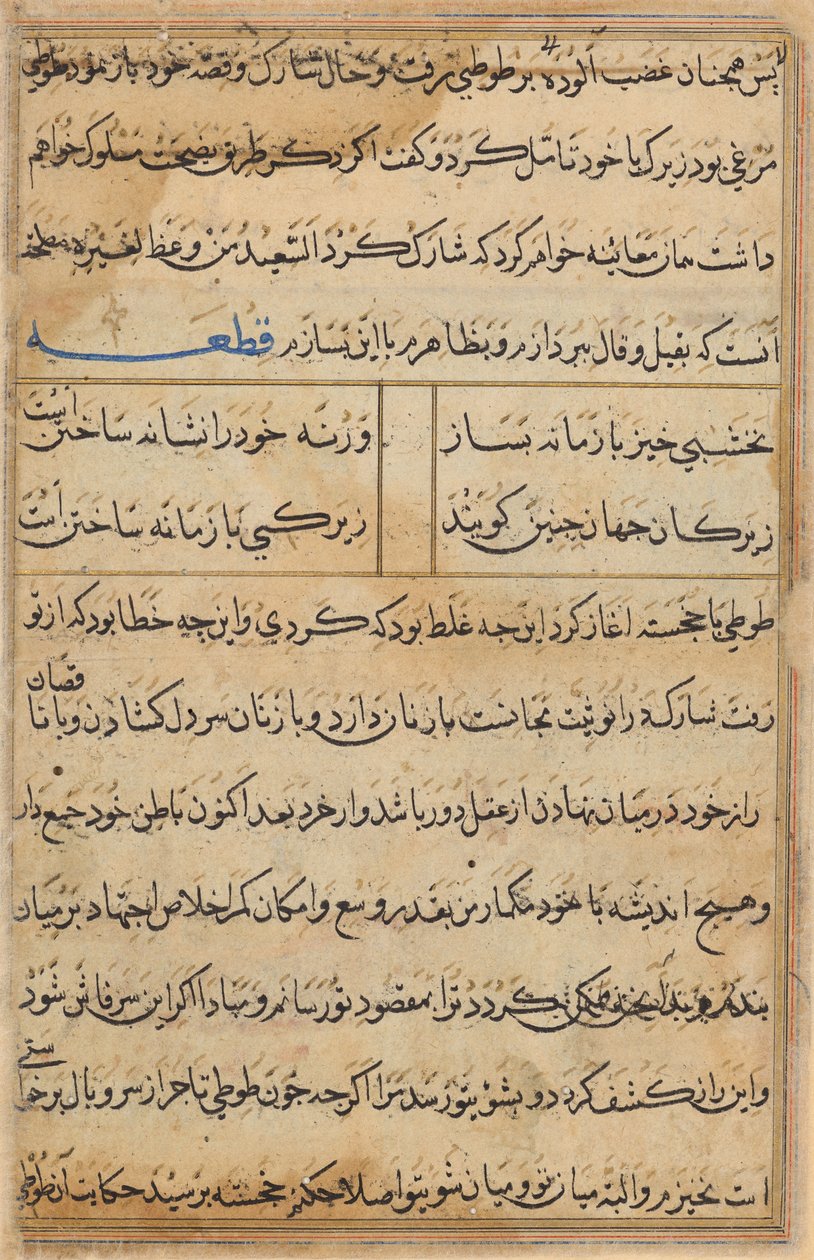 پس همچنان غضب آلوده بر طوطي رفت و حال شارک و قصه خود باز نمود طوطي
مرغي بود زيرک با خود تامّل کرد و گفت اگر ذکر طريق نصيحت مسلوک خواهم
داشت همان معاينه خواهم کرد که شارک کرد السّعيد من وعظ لغيره مصلحت
آنست که بقيل و قال بپردازم و بظاهرم با اين بسازم قطعه
نخشبي خيز با زمانه بساز ورنه خود را نشانه ساختن است
زيرکان جهان چنين گويند زيرکي با زمانه ساختن است
طوطي با خجسته آغاز کرد اين چه غلط بود که کردي و اين چه خطا بود که از تو
رفت شارک را نوثيت مجانست با زنان دارد و با زنان سر دل کشادن و با ناقصان
راز خود در ميان نهادن از عقل دور باشد و از خرد بعد اکنون باطن خود جمع دار
و هيچ انديشه با خود مگمار من بقدر وسع و امکان کمر اخلاص اجتهاد بر ميان
بندم گردد ترا بمقصود تو رسانم و مبادا اگر اين سر فاش شود
و اين راز کشف گردد و بشوي تو رسد مرا اگر چه چون طوطي تاجر از سر و بال بر خواستي
است نخيزم و البته ميان تو و ميان شوي تو اصلاح کنم خجسته پرسيد حکايت آن طوطي